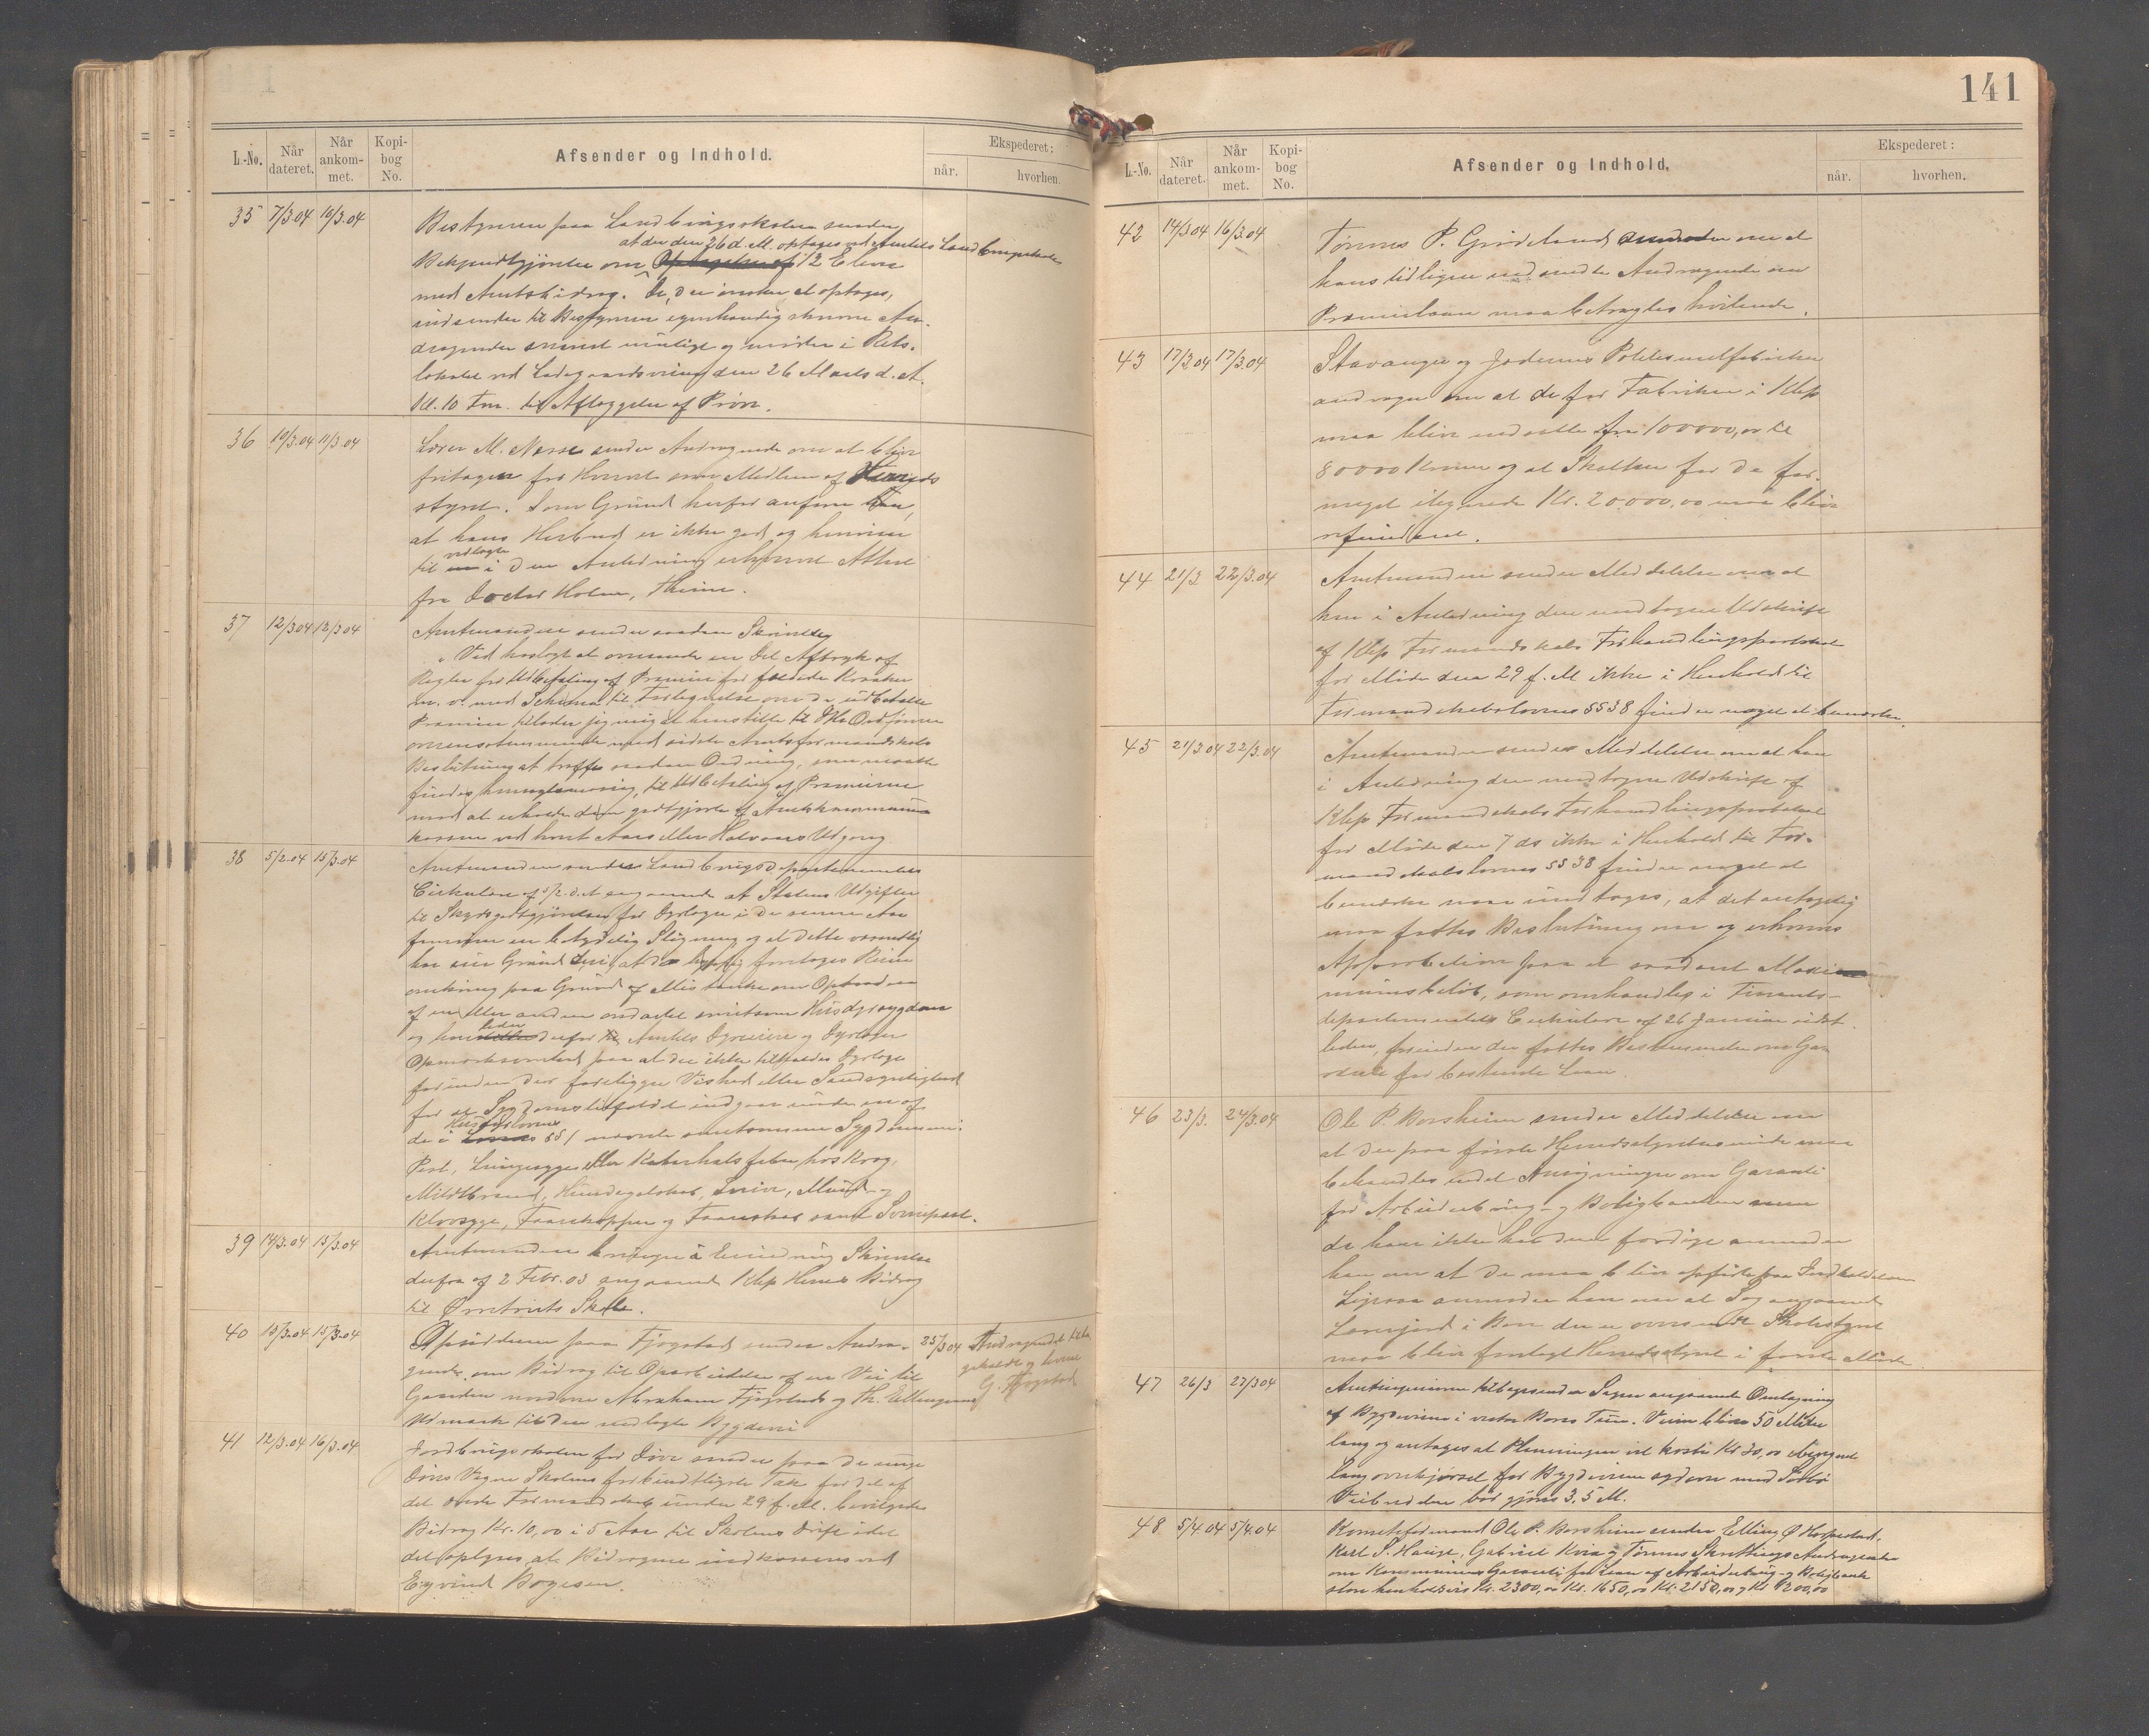 141
L.-No. Når dateret. Når ankom-met. Kopi-bog No. Afsender og Indhold. Ekspederet: når. hvorhen.
35 7/3.04 10/3.04 Bestyreren paa Landbrugsskolen sender
at der den 26 d. M. optages ved Amtets Landbrugsskole
Bekjendtgjørelse om 12 Elever
med Amtsbidrag. De, der ønsker at optages,
indsender til Bestyreren egenhændig skrevne An-
dragender snarest muligt og møder i
lokalet ved Ladegaardsveien den 26 Marts d. A.
Kl. 10 Fm. til Aflæggelse af Prøve.
36 10/3.04 11/3 04 Lærer M. Næsse sender Andragende om at blive
fritagen fra Hvervet som Medlem af
styret. Som Grund herfor anfører han,
at hans Helbred er ikke god og henviser
vedlagte
til i den Anledning erhvervet Attest
fra Doctor Holm, Thime.
37 12/3.04 12/3 04 Amtmanden sender saadan Skrivelse
"Ved hoslagt at oversende en Del Aftryk af
Regler for Udbetaling af Præmier for fældede Kraaker
m. v. med Schema til Fortegnelse over de udbetalte
Præmier tillader jeg mig at henstille til Hr. Ordfører
overensstemmende med sidste Amtsformandskabs
Beslutning at træffe saadan Ordning, som maatte
findes hensigtsmæssig, til Udbetaling af Præmierne
mod at erholde dem godtgjorte af Amtskommune-
kassen ved hvert Aars eller Halvaars Udgang.
38 5/2.04 15/3.04 Amtmanden sender Landbrugsdepartementets
Cirkulære af 5/2. d. A angaaende at Statens Udgifter
til Skydsgodtgjørelse for Dyrlæger i de senere Aar
fremviser en betydelig Stigning og at dette væsentlig
har sin Grund deri, at der hyppig foretages Reiser
omkring paa Grund af Mistanke om Optræden
af en eller anden ondartet smitsom Husdyrsygdom
leder
og hen derfor Amtets Dyreeiere og Dyrlæger
Opmærksomhed paa at der ikke tilkaldes Dyrlæge
forinden der foreligger Vished eller Sandsynlighed
for at Sygdomstilfældet indgaar under en af
Husdyrlovens
de i §§ 1 nævnte smitsomme Sygdomme:
Pest, Lungesyge eller Katarhalsfeber hos Kvæg,
Miltbrand, Hundegalskab, Snive, Mund- og
Klovsyge, Faarekopper og Faareskab samt Svinepest.
39 14/3.04 15/3.04 Amtmanden bringer i Erindring Skrivelse
derfra af 2 Febr. 03 angaaende Klep Herreds Bidrag
til Ørnstrints Skole.
40 15/3.04 15/3.04 Opsidderne paa Fjogstad sender Andra- 25/3 04 Andragendet tilba
gende om Bidrag til Oparbeidelse af en Vei til gekaldt og leveret
Gaarden nordover Abraham Fjogstads og Th. Ellingsens G. Fjogstad
Udmark til den nedlagte Bygdevei
41 12/3.04 16/3.04 Jordbrugsskolen for Døve sender paa de unge
Døves Vegne Skolens forbindtligste Tak for det af
det ærede Formandskab under 29 f. M. bevilgede
Bidrag Kr. 10,00 i 5 Aar til Skolens Drift idet
det oplyses, at Bidragene indkasseres ved
Eyvind Bogesen.
L.-No. Når dateret. Når ankom-met. Kopi-bog No. Afsender og Indhold. Ekspederet: når. hvorhen.
42 14/3 04 16/3.04 Tønnes P. Grødeland anmoder om at
hans tidligere indsendte Andragende om
Præmielaan maa betragtes hvilende.
43 17/3.04 17/3.04 Stavanger og Jæderens Potetesmelfabriker
andrager om at de for Fabriken i Klep
maa blive nedsatte fra 100000,00 til
80000 Kroner og at Skatten for de for-
meget ilignede Kr. 20.000,00 maa blive
refunderet.
44 21/3 22/3.04 Amtmanden sender Meddelelse om at
han i Anledning den modtagne Udskrift
af Klep Formandskabs Forhandlingsprotokol
for Møde den 29 f. M ikke i Henhold til
Formandskabslovens §§38 finder noget at bemærke.
45 21/3.04 22/3.04 Amtmanden sender Meddelelse om at han
i Anledning den modtagne Udskrift af
Klep Formandskabs Forhandlingsprotokol
for Møde den 7 ds ikke i Henhold til For-
mandskabslovens §§38 finder noget at
bemærke naar undtages, at det antagelig
maa fattes Beslutning om og erhverves
Approbation paa et saadant Maxi
mumsbeløb, som omhandles i Finants-
departementets Cirkulære af 26 Januar sidst-
leden, forinden der fattes Beslutninger om Ga-
ranti for bestemte Laan.
46 23/3. 24/3.04 Ole P. Borsheim sender Meddelelse om
at der paa første Herredsstyresmøde maa
behandles endel Ansøgninger om Garanti
for Arbeiderbrug- og Boligbanken men
da han ikke har dem færdige anmoder
han om at de maa blive opført paa Indkaldelsen
Ligesaa anmoder han om at Sag angaaende
Lærerjord i Bore der er oversendt Skolestyret
maa blive forelagt Herredsstyret i første Møde.
47 26/3 27/3 04 Amtsingeniøren tilbagesender Sagen angaaende Omlægning
af Bygdeveien i vestre Bores Tun. Veien bliver 50 Meter
lang og antages at Planeringen vil koste Kr 30,00
lang overkjørsel for Bygdeveien sydover mod
Veibredden bør gjøres 3,5 M.
48 5/4 04 5/4.04 Komiteformand Ole P. Borsheim sender Elling Ø Horpestad,
Karl S. Hauge, Gabriel Kvia og Tønnes Skrettings Andragender
om Kommunens Garanti for Laan af Arbeiderbrug- og Boligbank
store henholdsvis Kr. 2300,00 Kr. 1650,00 Kr. 2150,00 og Kr 1200,00